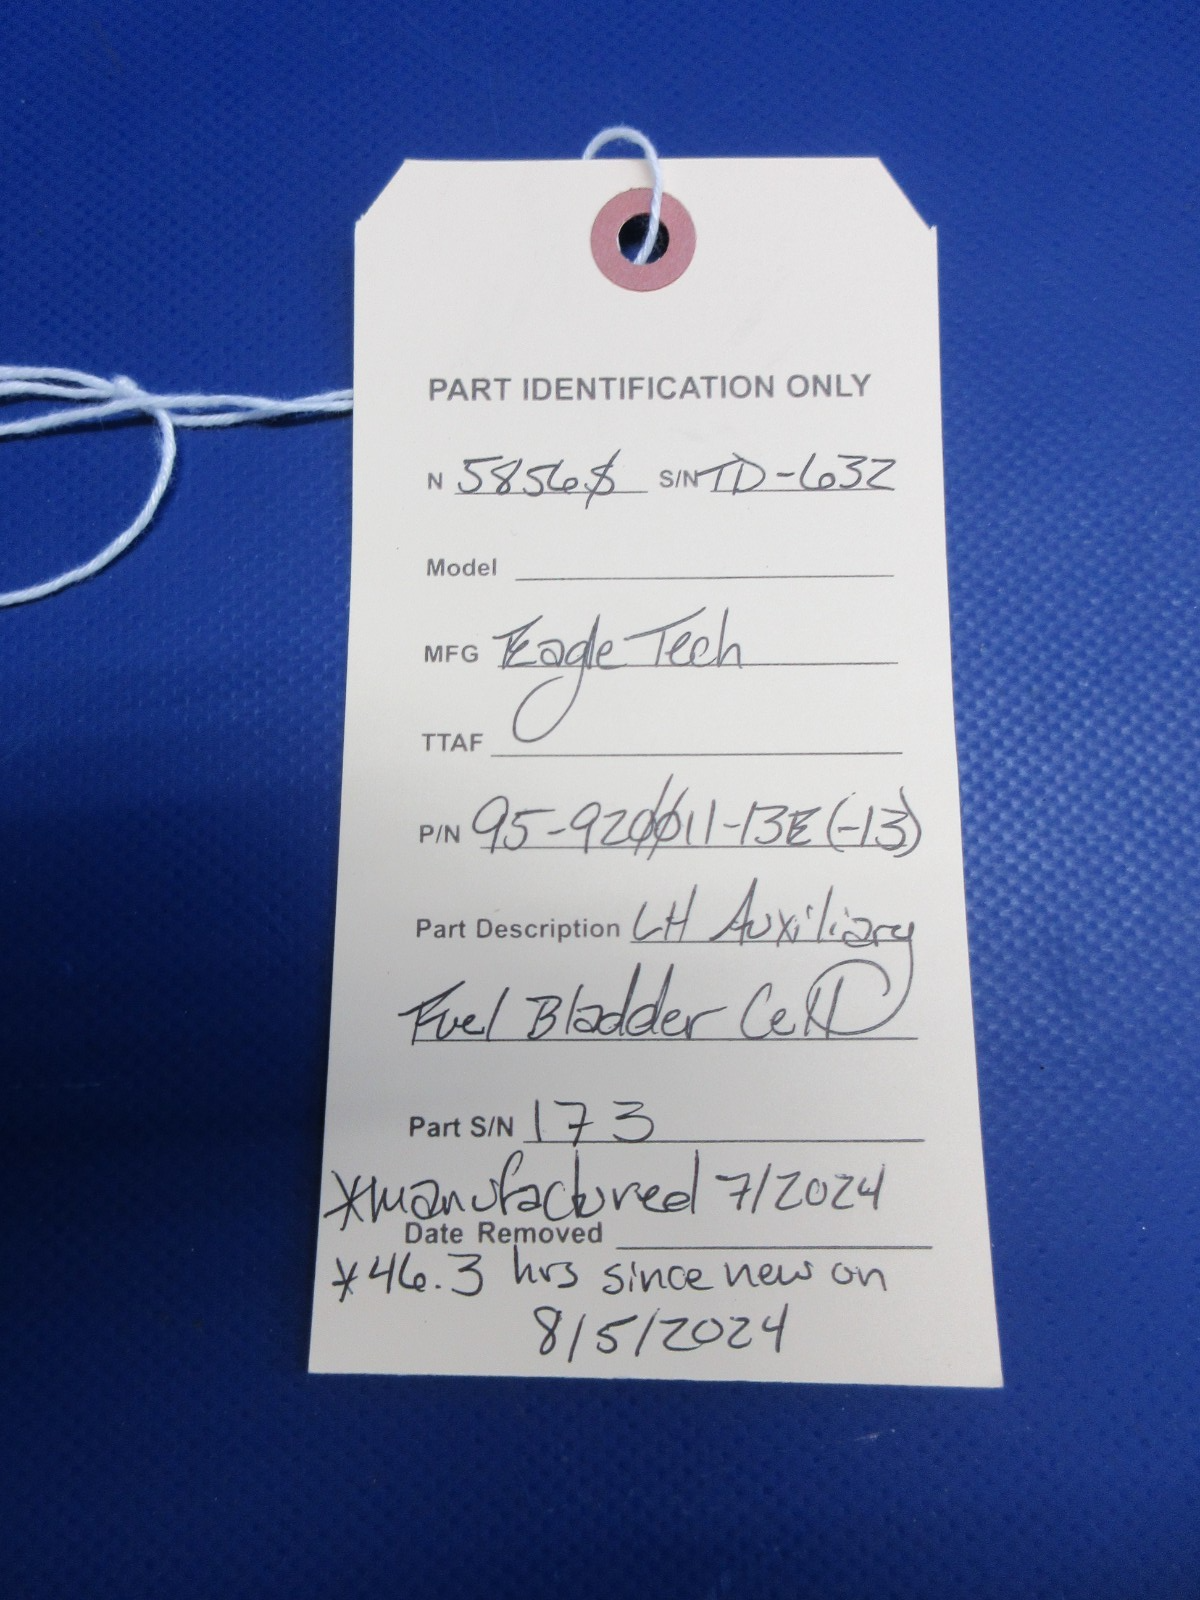 PART IDENTIFICATION ONLY
N 58560 S/N TD-632
Model
MFG Eagle Tech
TTAF
P/N 95-920011-13E (-13)
Part Description LH Auxiliary
Fuel Bladder Cell
Part S/N 173
*manufactured 7/2024
Date Removed
*46.3 hrs since new on
8/5/2024